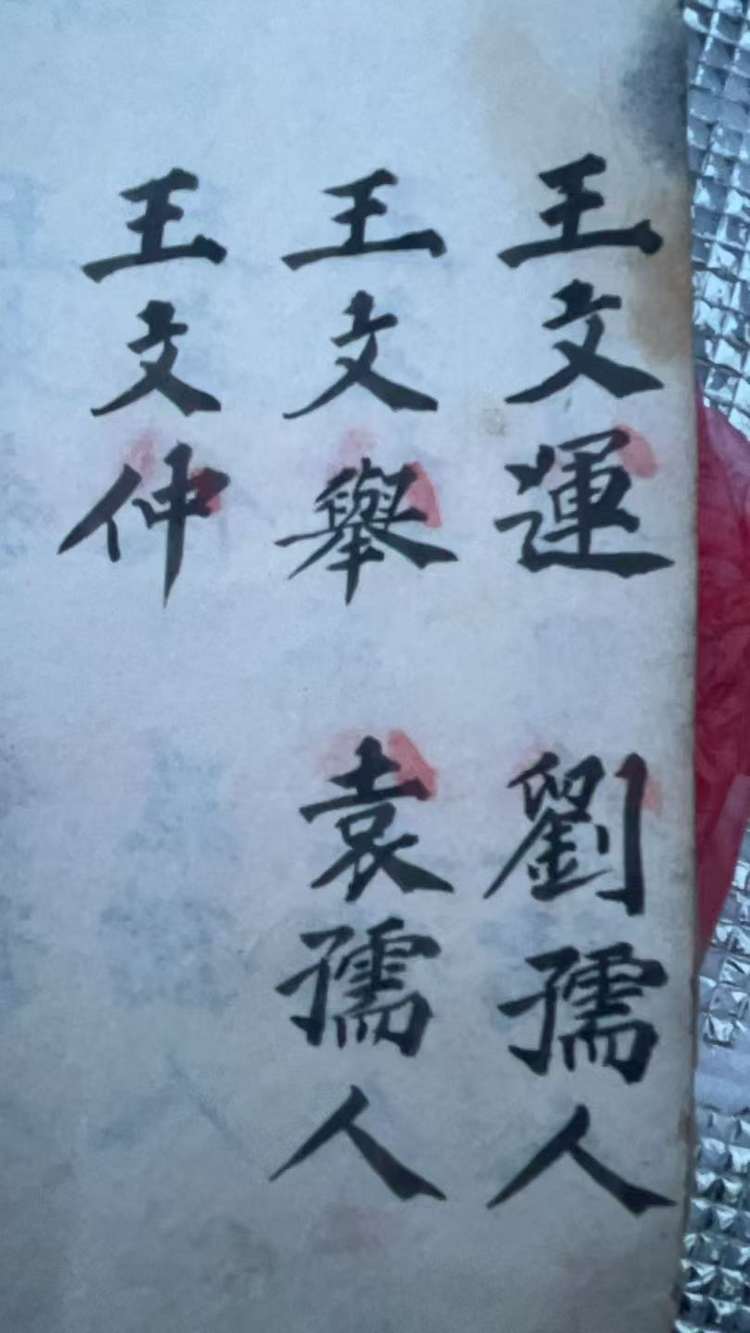 王文運 劉孺人
王文舉 袁孺人
王文仲